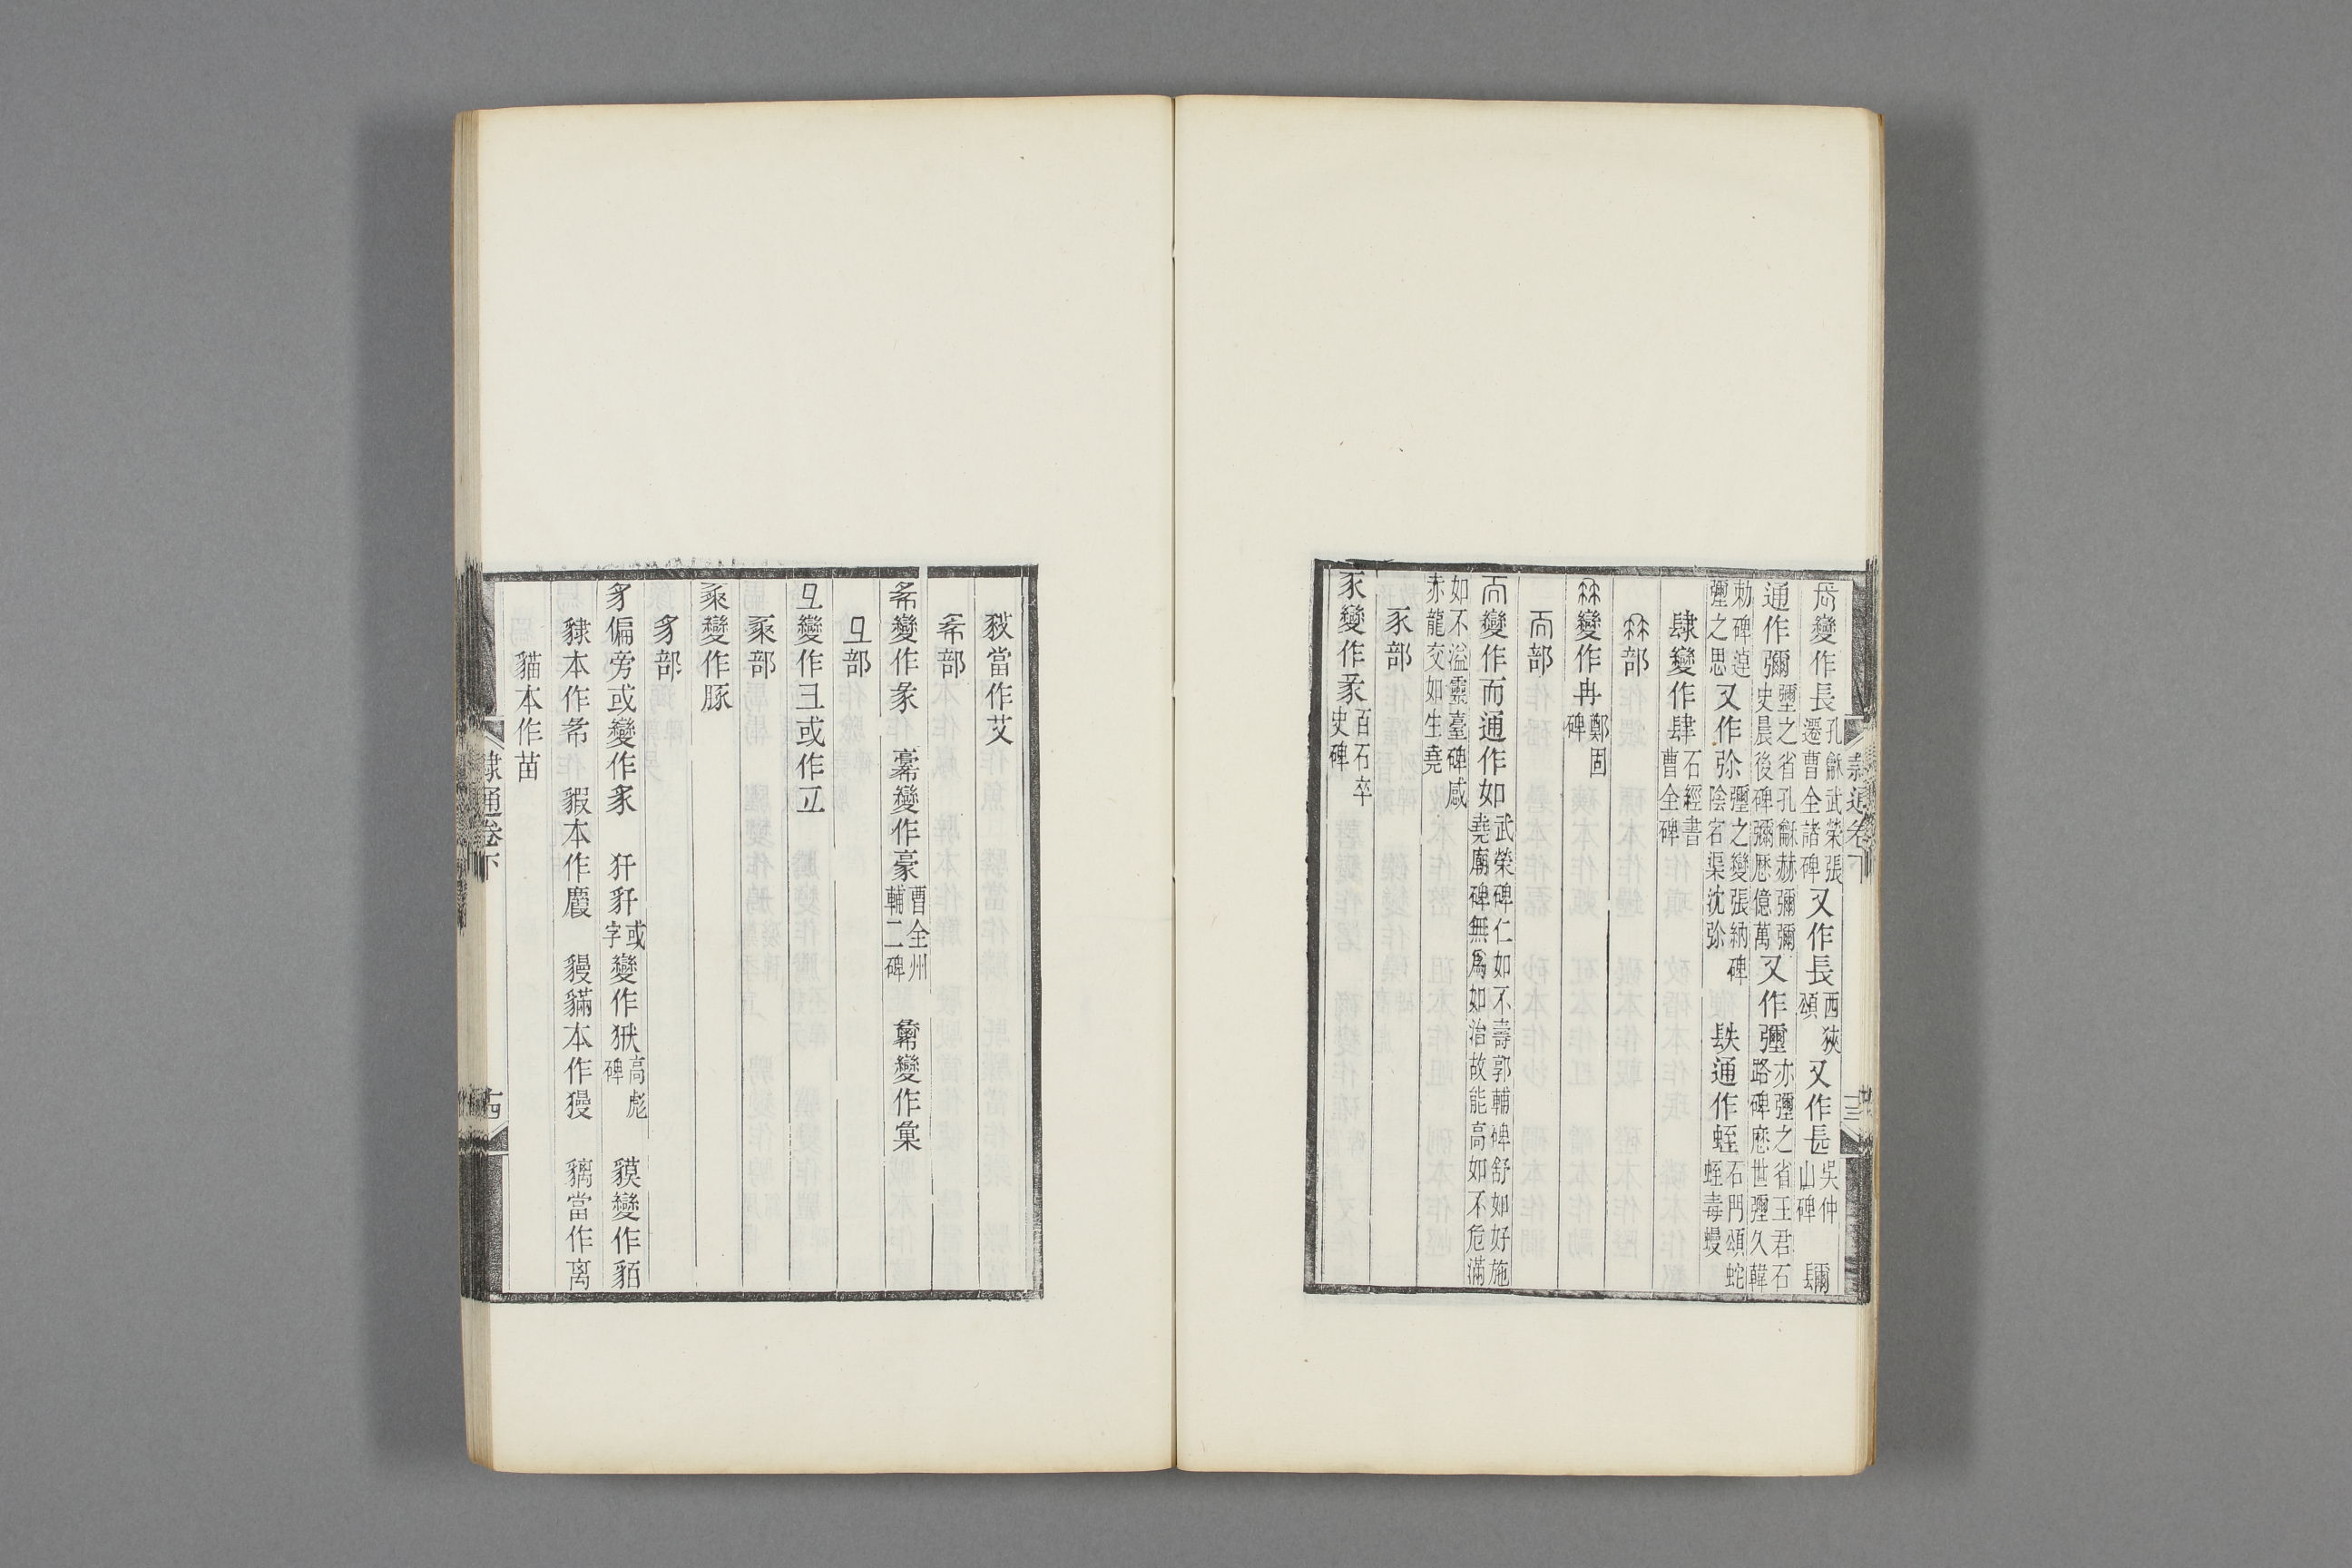 镸變作長孔龢武榮張遷曹全諸碑又作長西狹頌又作镸吳仲山碑 镾
通作彌璽之省孔龢赫彌彌史晨後碑彌歷億萬又作彌亦彊之省王君石路碑歷世彌久韓
勑碑遑彌之思又作弥彌之變張納碑陰宕渠沈弥 镻通作蛭石門頌蛇蛭毒蟃
肆變作肆石經書曹全碑
冄部
冄變作冉鄭固碑
而部
而變作而通作如武榮碑仁如不壽郭輔碑舒如好施堯廟碑無爲如治故能高如不危滿
如不溢靈臺碑咸赤龍交如生堯
豕部
豕變作豕百石卒史碑
豛當作艾
㣇部
㣇變作彖 㣇變作豪曹全州輔二碑 彙變作彙
彑部
彑變作彐或作彑
豚部
豚變作豚
豸部
豸偏旁或變作豸 犴豻或字變作犾高彪碑 貘變作貊
貄本作㣇 貑本作麚 貗貓本作獌 貓當作离
貓本作苗
隸通卷下
隸通卷下
十四
十三